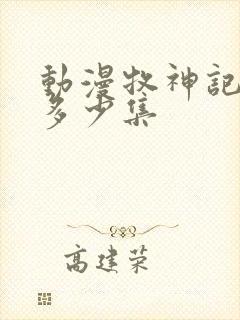 動漫牧神記
多少集
高建荣